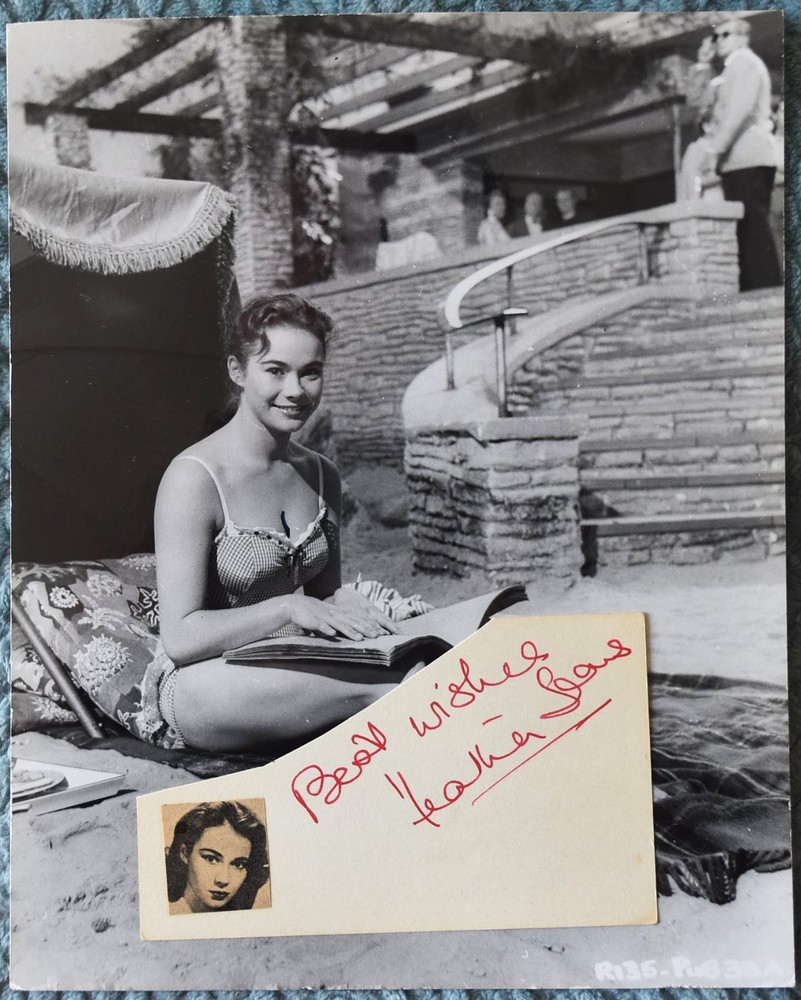 Best wishes
Heather Sears
R136-Pub38A